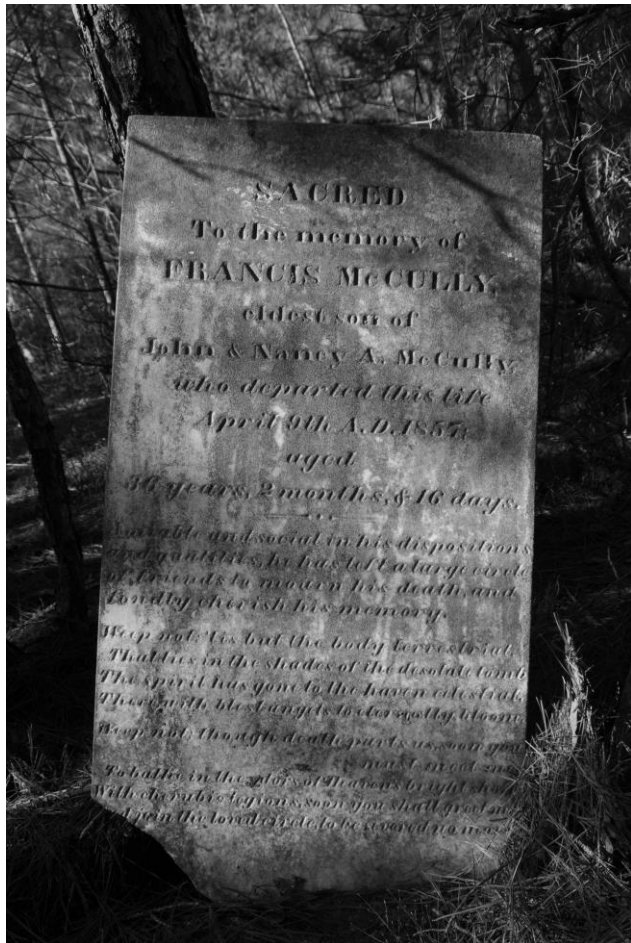 SACRED
To the memory of
FRANCIS McCULLY,
eldest son of
John & Nancy A. McCully,
who departed this life
April 9th A.D. 1857;
aged
36 years, 2 months, & 16 days.
Amiable and social in his dispositions
and he has left a large circle
of friends to mourn his death, and
fondly cherish his memory.
Weep not, 'tis but the body terrestrial,
That lies in the shades of the desolate tomb
The spirit has gone to the haven celestial,
There with blest angels to eternally bloom.
Weep not, though death parts us, soon you
must meet me
To bathe in the glory of Heavens bright
With cherubic legions, soon you shall greet me
join the loved circle, to be severed no more